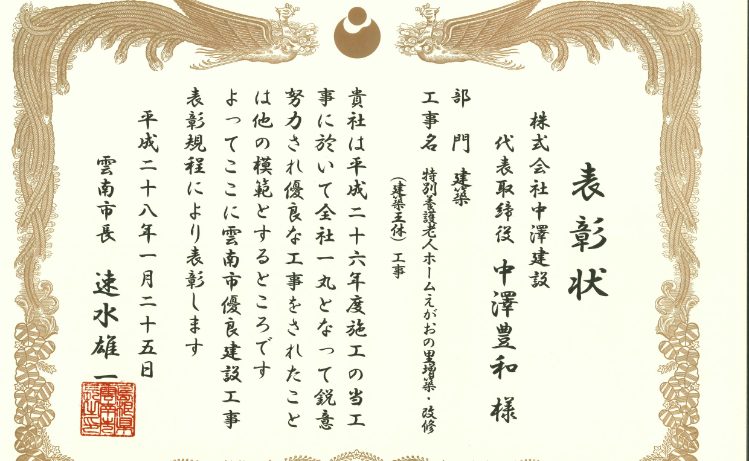 表彰状
株式会社中澤建設
代表取締役 中澤豊和 様
部門 建築
工事名 特別養護老人ホームえがおの里増築・改修
(建築主体)工事
貴社は平成二十六年度施工の当工
事に於いて全社一丸となって鋭意
努力され優良な工事をされたこと
は他の模範とするところです
よってここに雲南市優良建設工事
表彰規程により表彰します
平成二十八年一月二十五日
雲南市長 速水雄一